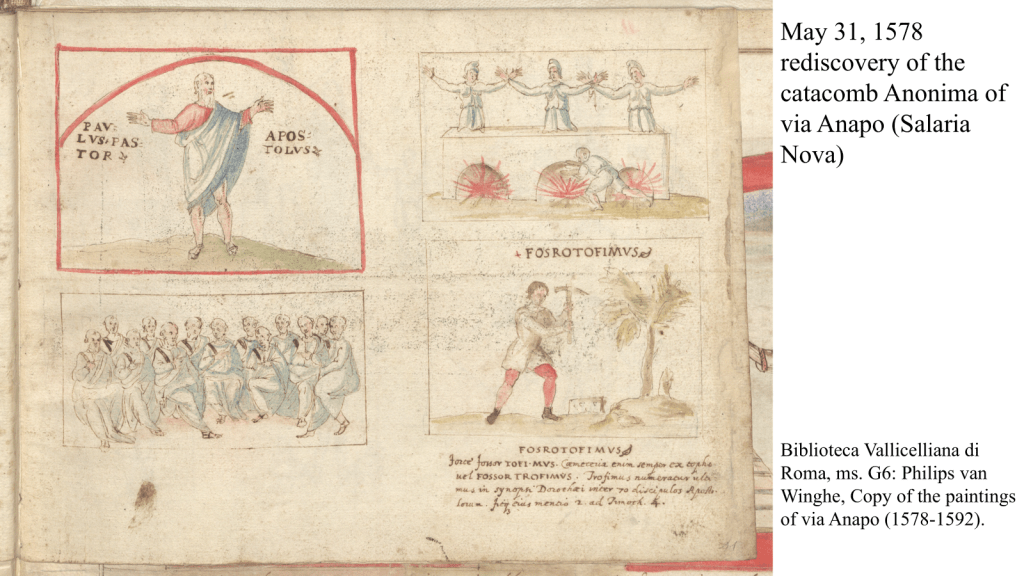 PAV:
LVS·PAS:
TOR
APOS:
TOLVS
+ FOSROTOFIMVS
FOSROTOFIMVS
forte fossor TOFI·MVS. Cœmeteria enim semper ex topho
vel FOSSOR TROFIMVS. Trofimus numeratus ulti-
mus in synopsi Dorothæi inter 70 discipulos Aposto-
lorum. eius mentio 2. ad Timoth. 4.
May 31, 1578
rediscovery of the
catacomb Anonima of
via Anapo (Salaria
Nova)
Biblioteca Vallicelliana di
Roma, ms. G6: Philips van
Winghe, Copy of the paintings
of via Anapo (1578-1592).